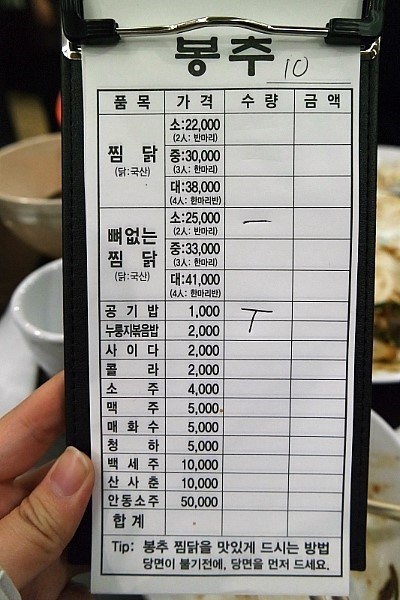 봉추 10
품 목 가 격 수 량 금 액
찜 닭
(닭:국산)
소:22,000
(2인: 반마리)
중:30,000
(3인: 한마리)
대:38,000
(4인: 한마리반)
뼈없는
찜 닭
(닭:국산)
소:25,000 一
(2인: 반마리)
중:33,000
(3인: 한마리)
대:41,000
(4인: 한마리반)
공 기 밥 1,000 丅
누룽지볶음밥 2,000
사 이 다 2,000
콜 라 2,000
소 주 4,000
맥 주 5,000
매 화 수 5,000
청 하 5,000
백 세 주 10,000
산 사 춘 10,000
안동소주 50,000
합 계
Tip: 봉추 찜닭을 맛있게 드시는 방법
당면이 불기전에, 당면을 먼저 드세요.